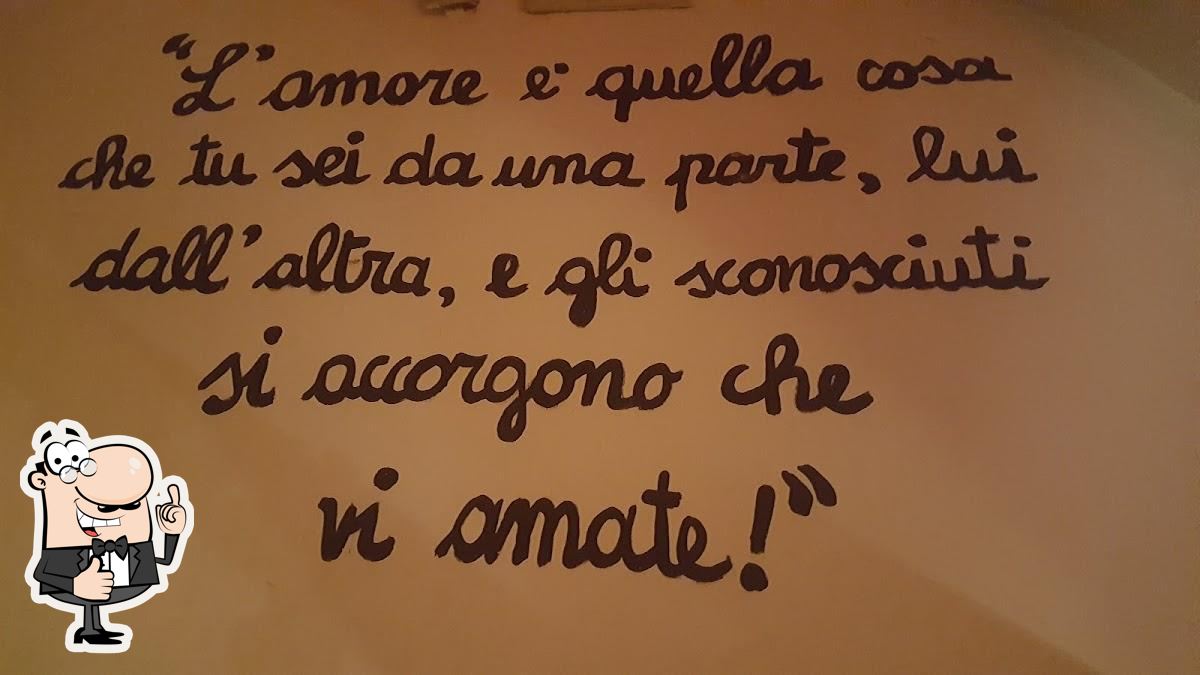 “L'amore è quella cosa
che tu sei da una parte, lui
dall'altra, e gli sconosciuti
si accorgono che
vi amate!”